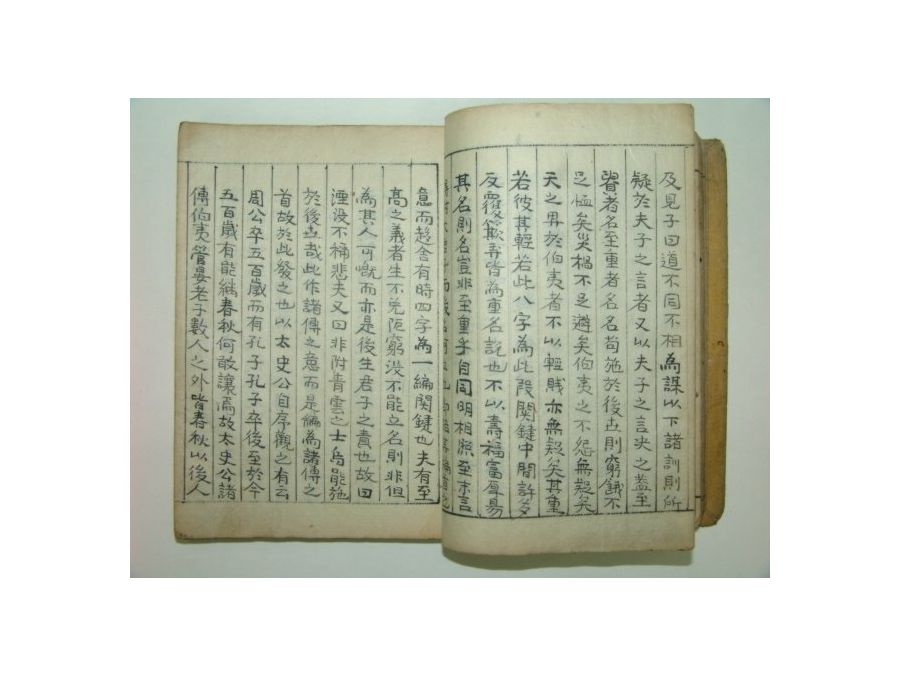 及見子曰道不同不相為謀以下諸訓則所
疑於夫子之言者又以夫子之言决之盖至
者名至重者名名苟施於後世則窮餓不
足恤矣災禍不足避矣伯夷之不怨無疑矣
天之畀於伯夷者不以輕賎亦無疑矣其重
若彼其輕若此八字為此段関鍵中間許多
反覆皆為重名說也不以壽福富厚易
其名則名豈非至重乎自同明相照至末言
意而趍舎有時四字為一編関鍵也夫有至
高之義者生不免阨窮没不能立名則非但
為其人可嘅而亦是後生君子之責也故曰
湮没不稱悲夫又曰非附青雲之士烏能施
於後世哉此作諸傳之意而是編為諸傳之
首故於此發之也以太史公自序觀之有云
周公卒五百歲而有孔子孔子卒後至於今
五百歲有能繼春秋何敢讓焉故太史公諸
傳伯夷管晏老子數人之外皆春秋以後人